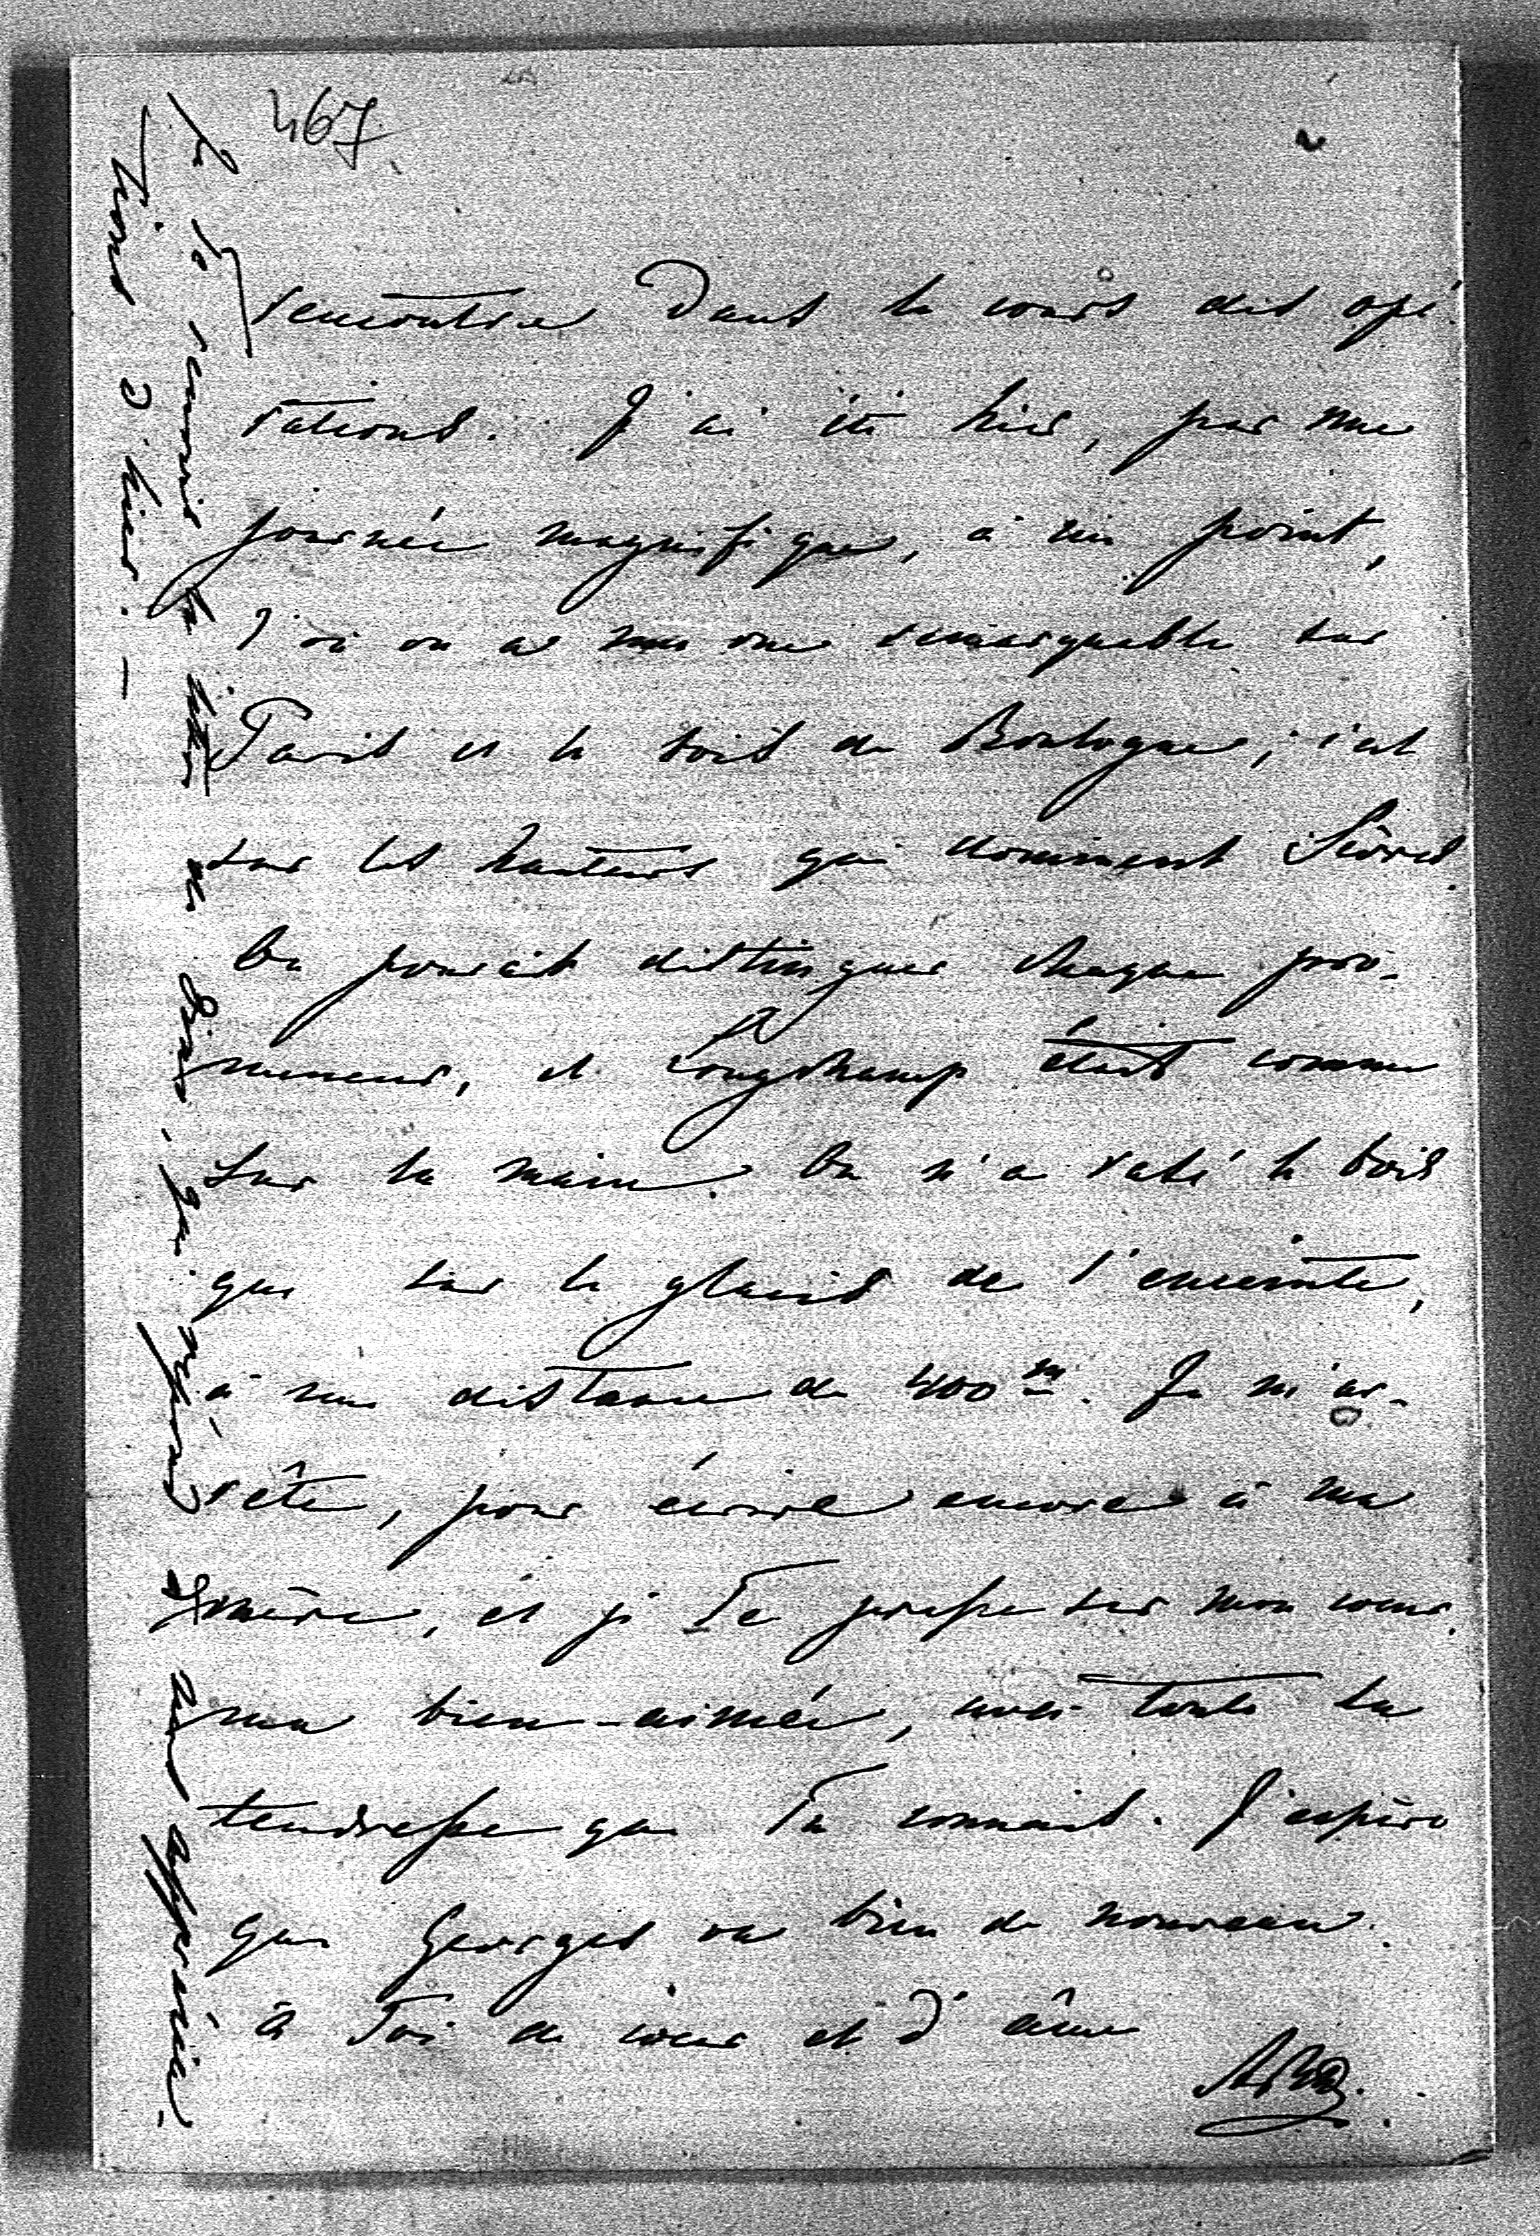 467.
rencontrée dans le cours des opé-
rations. J'ai été hier, par une
journée magnifique, à un point,
d'où on a une vue remarquable sur
Paris et le bois de Boulogne; c'est
sur les hauteurs qui dominent Sèvres.
On pouvait distinguer chaque pro-
meneur, et Longchamp était comme
sur la main. On n'a rasé le bois
que sur le glacis de l'enceinte,
à une distance de 400 m. Je m'ar-
rête, pour écrire encore à ma
mère, et je Te presse sur mon cœur,
ma bien-aimée, avec toute la
tendresse que Tu connais. J'espère
que Georges va bien de nouveau.
à Toi de cœur et d'âme
Je Te remercie de la lettre de
Tiens d'hier. —